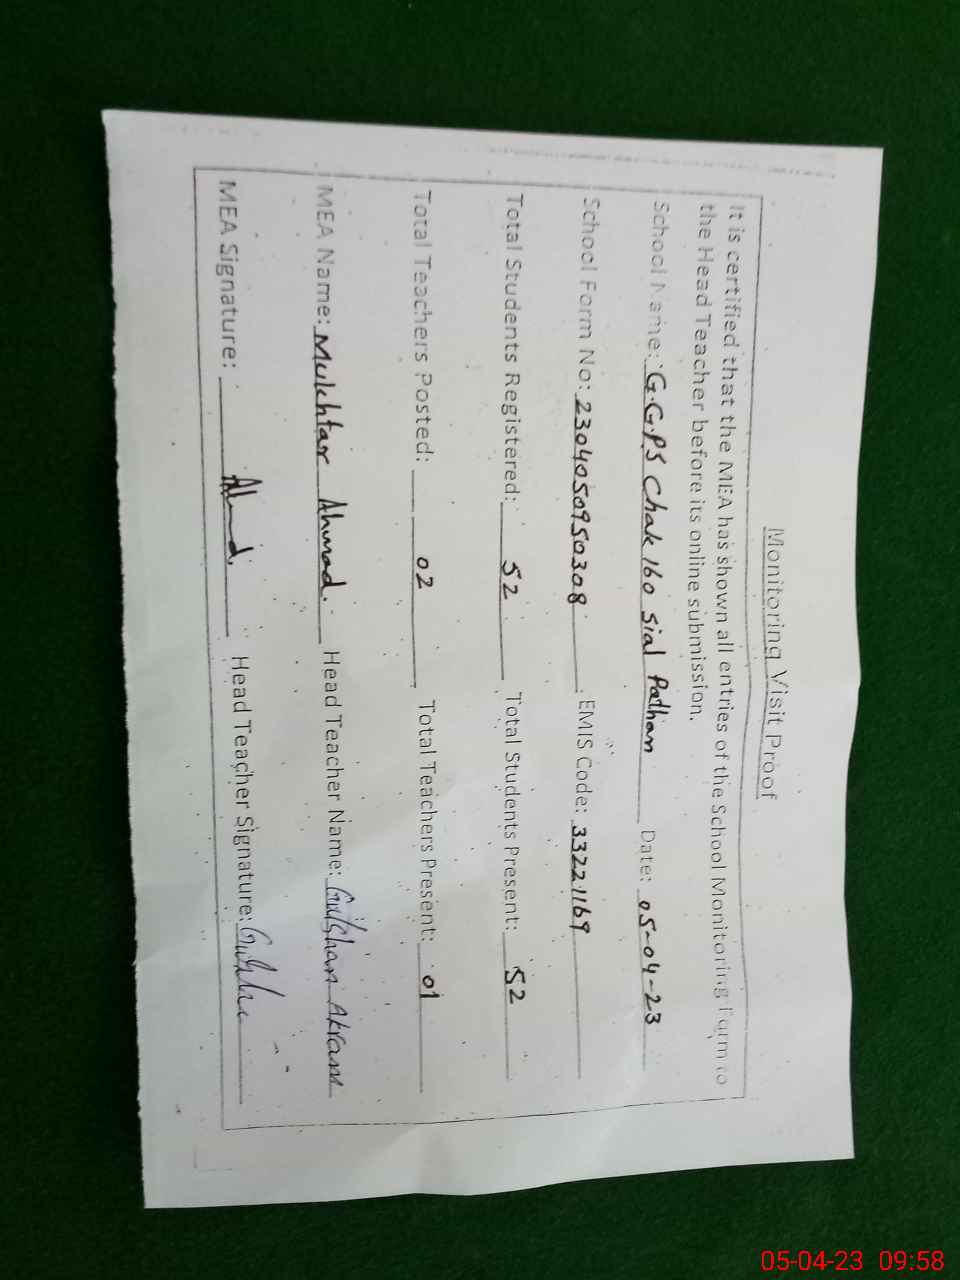 Monitoring Visit Proof
It is certified that the MEA has shown all entries of the School Monitoring Form to
the Head Teacher before its online submission.
School Name: G.G.P.S Chak 160 Sial Pathan Date: 05-04-23
School Form No: 2304050950308 EMIS Code: 33221169
Total Students Registered: 52 Total Students Present: 52
Total Teachers Posted: 02 Total Teachers Present: 01
MEA Name: Mukhtar Ahmad. Head Teacher Name: Gulshan Akram
MEA Signature: Head Teacher Signature:
05-04-23 09:58